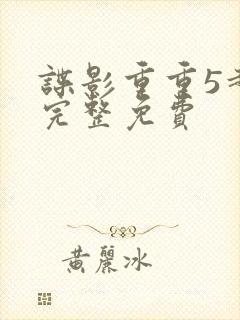 諜影重重5
完整免費
黃麗冰